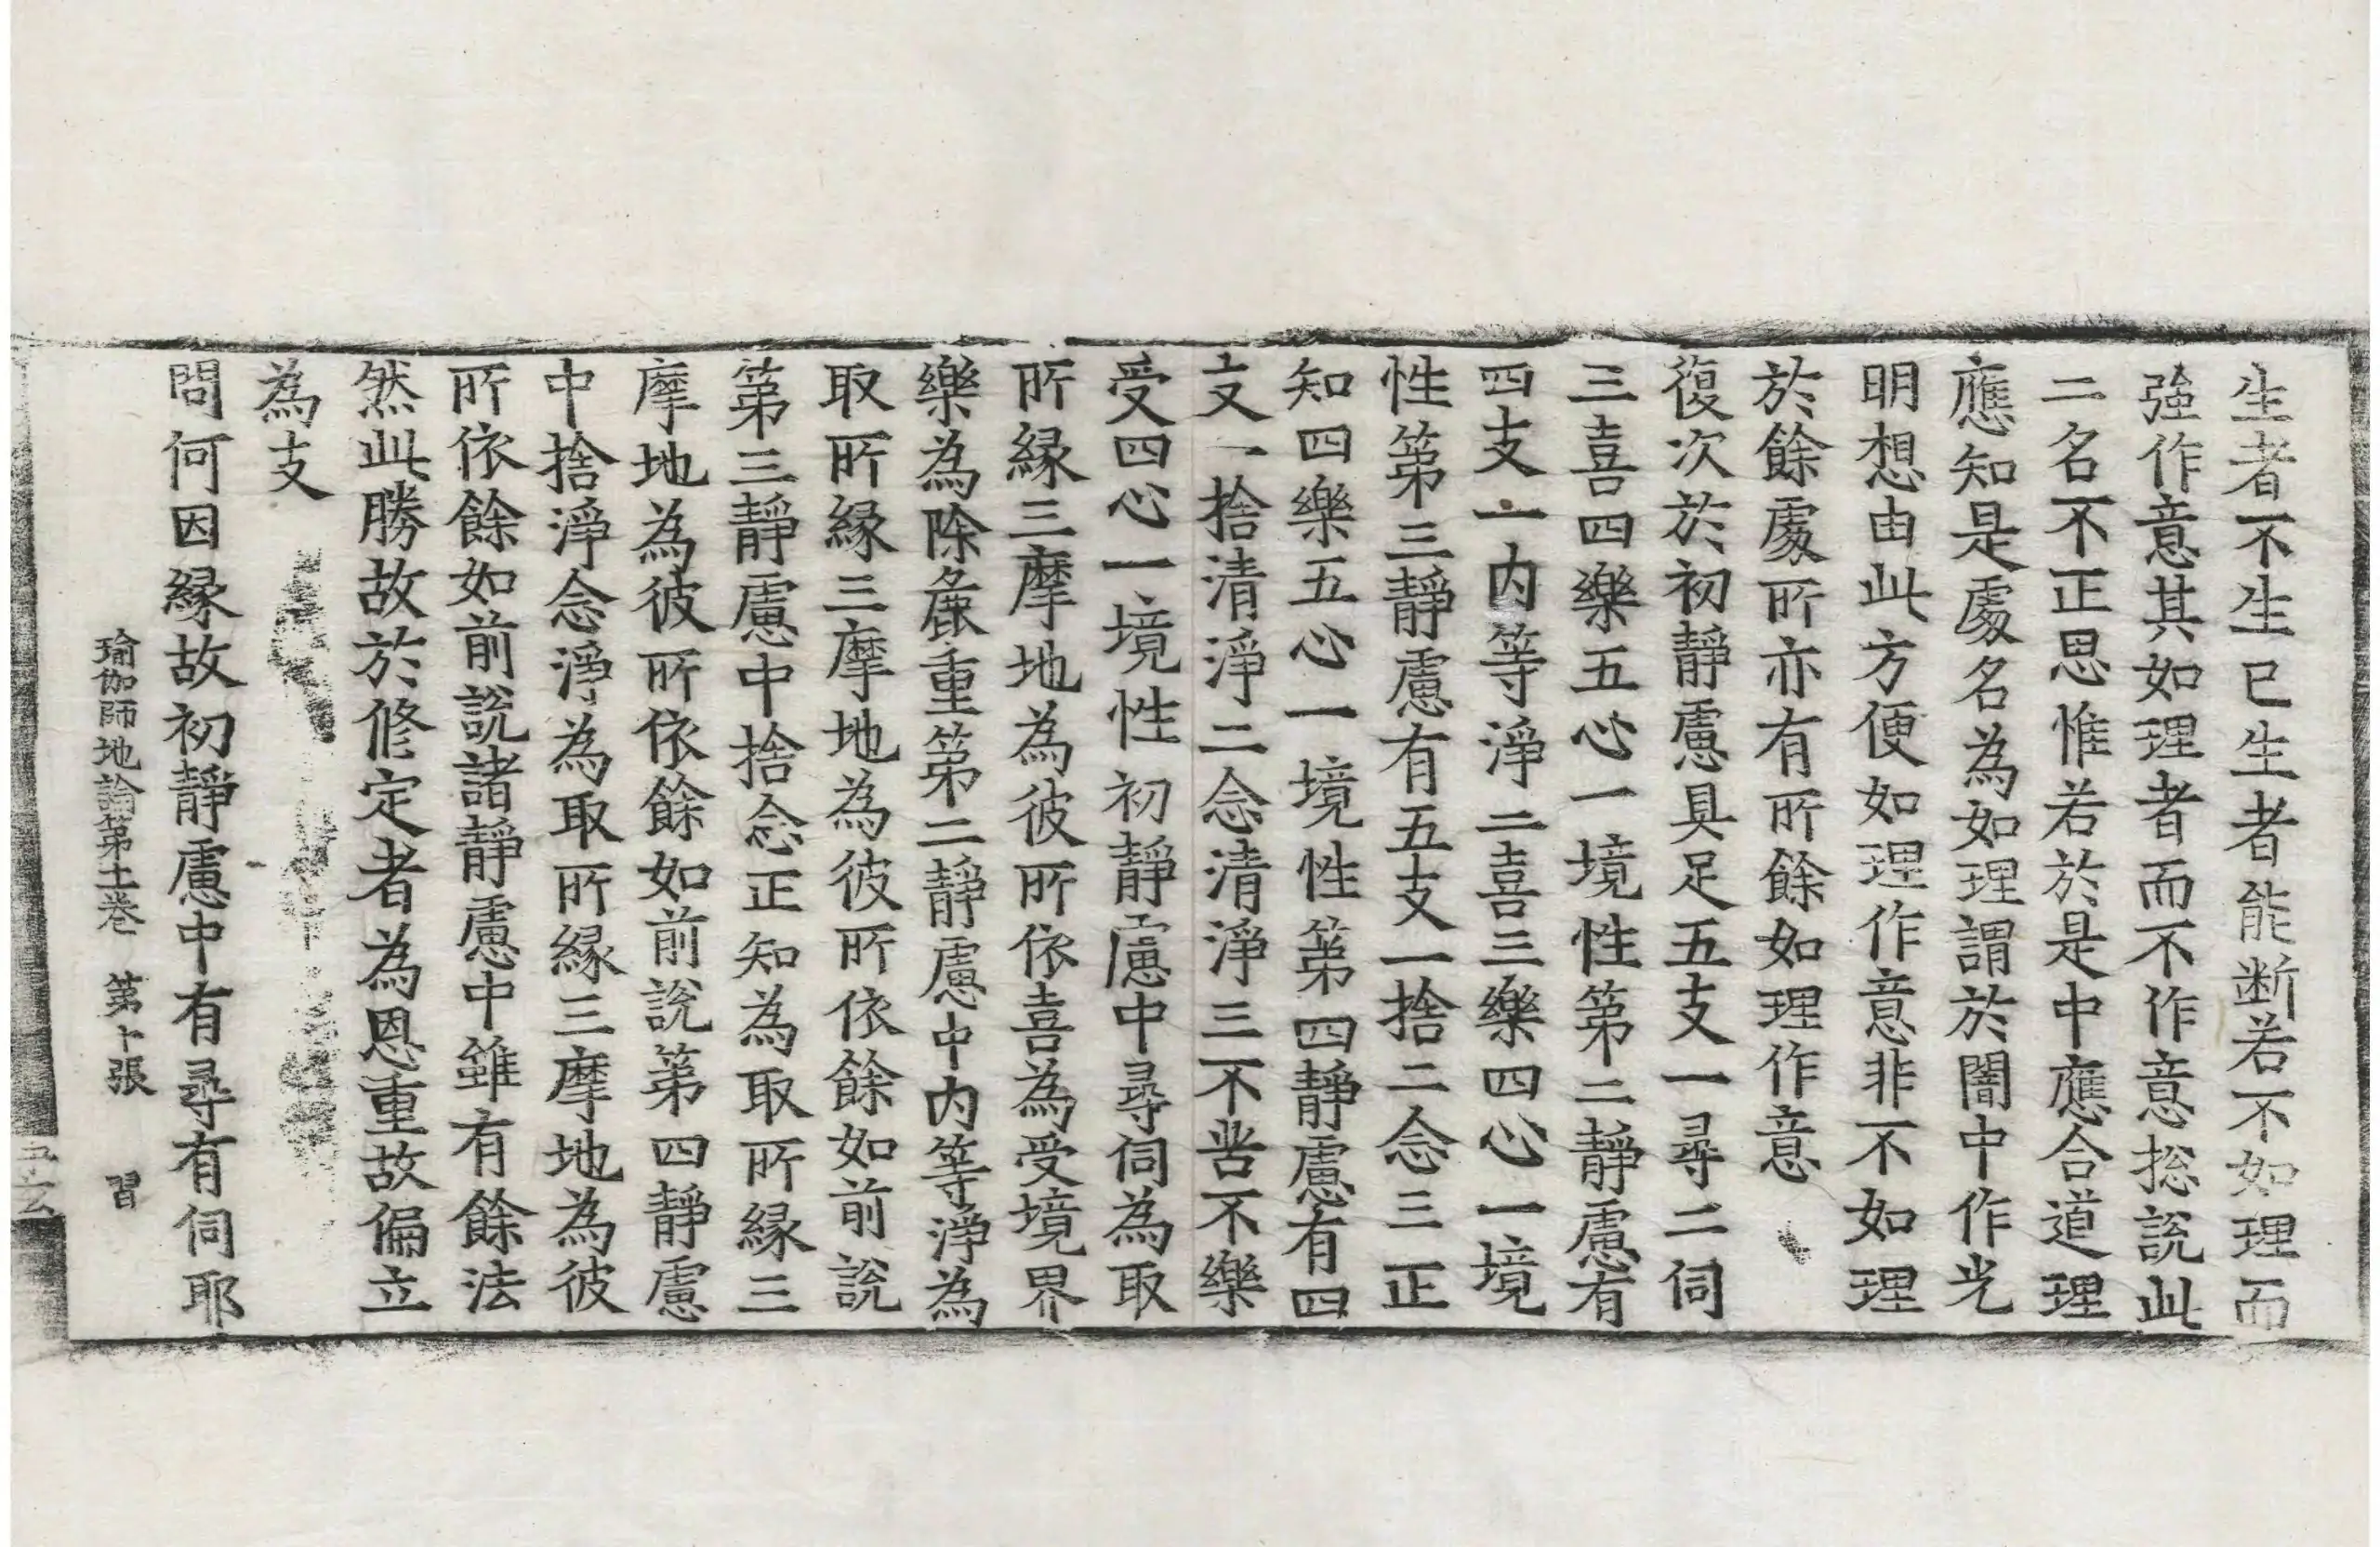 生者不生已生者能断若不如理而
強作意其如理者而不作意揔說此
二名不正思惟若於是中應合道理
應知是處名為如理謂於闇中作光
明想由此方便如理作意非不如理
於餘處所亦有所餘如理作意
復次於初靜慮具足五支一尋二伺
三喜四樂五心一境性第二靜慮有
四支一内等淨二喜三樂四心一境
性第三靜慮有五支一捨二念三正
知四樂五心一境性第四靜慮有四
支一捨清淨二念清淨三不苦不樂
受四心一境性初靜慮中尋伺為取
所緣三摩地為彼所依喜為受境界
樂為除麁重第二靜慮中内等淨為
取所緣三摩地為彼所依餘如前說
第三靜慮中捨念正知為取所緣三
摩地為彼所依餘如前說第四靜慮
中捨淨念淨為取所緣三摩地為彼
所依餘如前說諸靜慮中雖有餘法
然此勝故於修定者為恩重故偏立
為支
問何因緣故初靜慮中有尋有伺耶
瑜伽師地論第十一卷 第十張 習